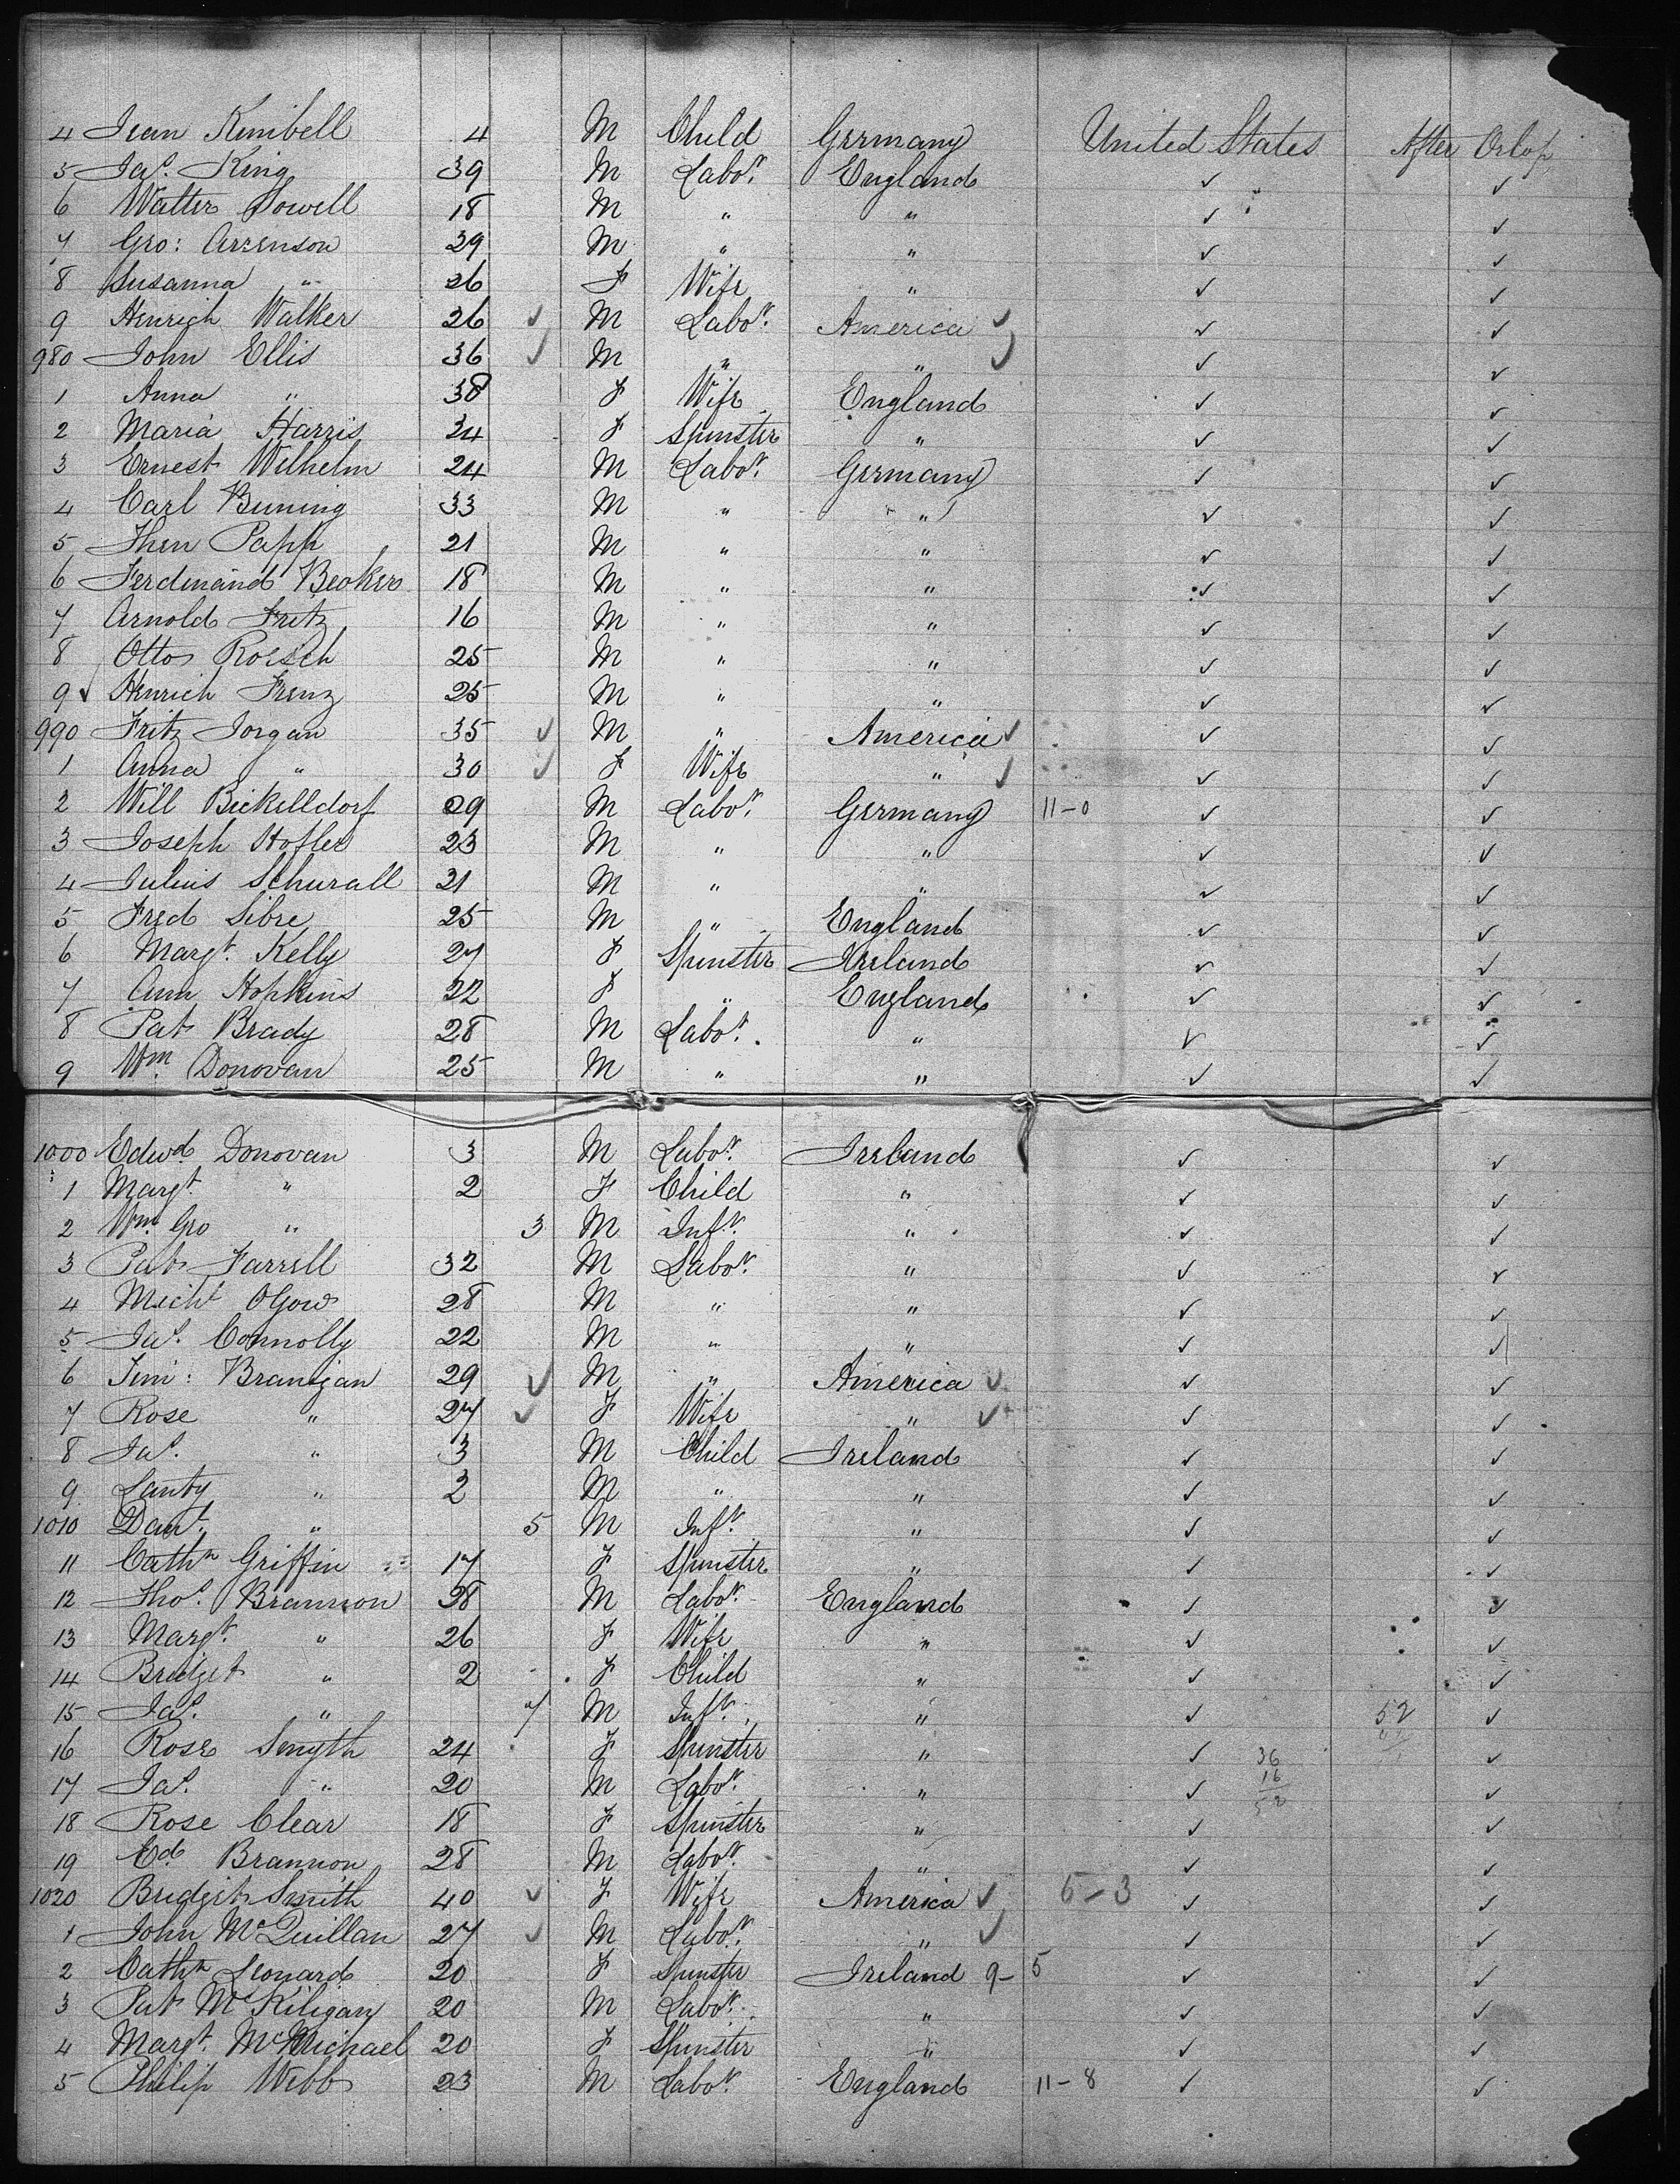 4 Jean Kimbell 4 M Child Germany United States After Orlop
5 Jas. King 39 M Labor. England ✓ ✓
6 Walter Sowell 18 M " " ✓ ✓
7 Geo: Arrenson 29 M " " ✓ ✓
8 Susanna " 26 F Wife " ✓ ✓
9 Henrich Walker 26 ✓ M Labor. America ✓ ✓ ✓
980 John Ellis 36 ✓ M " " ✓ ✓ ✓
1 Anna " 38 F Wife England ✓ ✓
2 Maria Harris 34 F Spinster " ✓ ✓
3 Ernest Wilhelm 24 M Labor. Germany ✓ ✓
4 Carl Buning 33 M " " ✓ ✓
5 Papp 21 M " " ✓ ✓
6 Ferdinand Becker 18 M " " ✓ ✓
7 Arnold Fritz 16 M " " ✓ ✓
8 Otto Roesch 25 M " " ✓ ✓
9 ✓ Henrich Frenz 25 M " " ✓ ✓
990 Fritz Jorgan 35 ✓ M " America ✓ ✓ ✓
1 Anna " 30 ✓ F Wife " ✓ ✓ ✓
2 Will Bickelldorf 29 M Labor. Germany 11-0 ✓ ✓
3 Joseph Hofler 23 M " " ✓ ✓
4 Julius Schurall 21 M " " ✓ ✓
5 Fred Sibre 25 M " England ✓ ✓
6 Margt. Kelly 27 F Spinster Ireland ✓ ✓
7 Ann Hopkins 22 F " England ✓ ✓
8 Pat Brady 28 M Labor. " ✓ ✓
9 Wm. Donovan 25 M " " ✓ ✓
1000 Edwd. Donovan 3 M Labor. Ireland ✓ ✓
1 Margt. " 2 F Child " ✓ ✓
2 Wm. Geo " 3 M Inft. " ✓ ✓
3 Pat Farrell 32 M Labor. " ✓ ✓
4 Michl OGow 28 M " " ✓ ✓
5 Jas. Connolly 22 M " " ✓ ✓
6 Jim: Branigan 29 ✓ M " America ✓ ✓ ✓
7 Rose " 27 ✓ F Wife " ✓ ✓ ✓
8 Jas. " 3 M Child Ireland ✓ ✓
9 Lanty " 2 M " " ✓ ✓
1010 Danl. " 5 M Inft. " ✓ ✓
11 Cathn Griffin 17 F Spinster " ✓ ✓
12 Thos. Brannon 28 M Labor. England ✓ ✓
13 Margt. " 26 F Wife " ✓ ✓
14 Bridget " 2 F Child " ✓ ✓
15 Jas. " 7 M Inft. " ✓ 52 ✓
16 Rose Smyth 24 F Spinster " ✓ 36 ✓
17 Jas. " 20 M Labor. " ✓ 16 ✓
52
18 Rose Clear 18 F Spinster " ✓ ✓
19 Ed. Brannon 28 M Labor. " ✓ ✓
1020 Bridget Smith 40 ✓ F Wife America ✓ 6-3 ✓ ✓
1 John McQuillan 27 ✓ M Labor. " ✓ ✓ ✓
2 Cathn Leonard 20 F Spinster Ireland 9-5 ✓ ✓
3 Pat McKiligan 20 M Labor. " ✓ ✓
4 Margt. McMichael 20 F Spinster " ✓ ✓
5 Philip Webb 23 M Labor. England 11-8 ✓ ✓